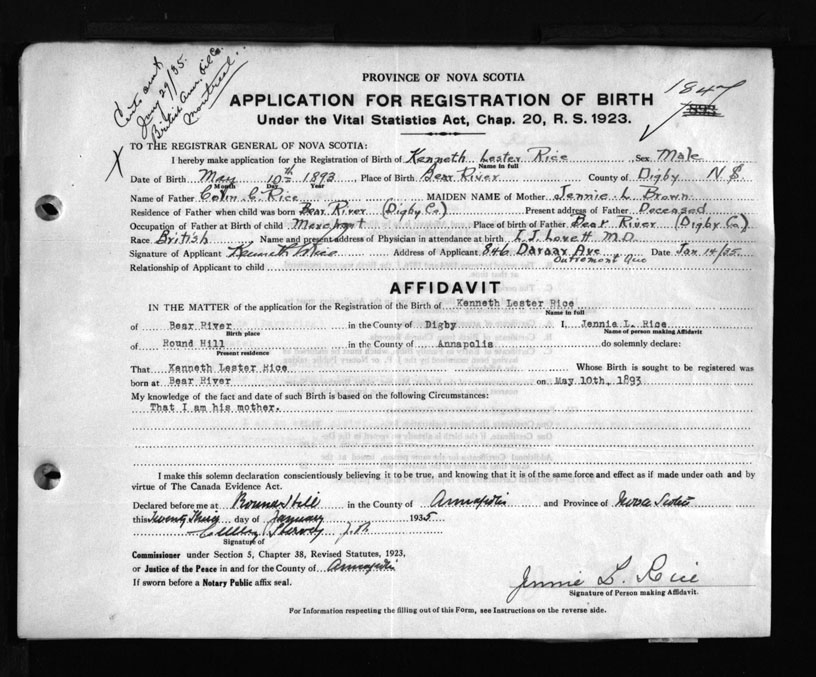 Cert. sent
Jany 29/35.
British Amer. Oil Co.
Montreal.
PROVINCE OF NOVA SCOTIA
1847
893
APPLICATION FOR REGISTRATION OF BIRTH
Under the Vital Statistics Act, Chap. 20, R. S. 1923.
TO THE REGISTRAR GENERAL OF NOVA SCOTIA:
X I hereby make application for the Registration of Birth of Kenneth Lester Rice Sex Male
Name in full
Date of Birth May 10th 1893, Place of Birth Bear River County of Digby N S.
Month Day Year
Name of Father Colin C. Rice MAIDEN NAME of Mother Jennie L. Brown
Residence of Father when child was born Bear River (Digby Co) Present address of Father Deceased
Occupation of Father at Birth of child Merchant Place of birth of Father Bear River (Digby Co)
Race British Name and present address of Physician in attendance at birth L. J. Lovett M.D.
Signature of Applicant Kenneth L Rice Address of Applicant 846 Ave Date Jan 14/35.
Outremont Que
Relationship of Applicant to child
AFFIDAVIT
IN THE MATTER of the application for the Registration of the Birth of Kenneth Lester Rice
Name in full
of Bear River in the County of Digby I, Jennie L. Rice
Birth place Name of person making Affidavit
of Round Hill in the County of Annapolis do solemnly declare:
Present residence
That Kenneth Lester Rice Whose Birth is sought to be registered was
born at Bear River on May 10th, 1893
My knowledge of the fact and date of such Birth is based on the following Circumstances:
That I am his mother.
I make this solemn declaration conscientiously believing it to be true, and knowing that it is of the same force and effect as if made under oath and by
virtue of The Canada Evidence Act.
Declared before me at Round Hill in the County of Annapolis and Province of Nova Scotia
this Twenty Third day of January 1935
J.P.
Signature of
Commissioner under Section 5, Chapter 38, Revised Statutes, 1923,
or Justice of the Peace in and for the County of Annapolis
If sworn before a Notary Public affix seal.
Jennie L. Rice
Signature of Person making Affidavit.
For Information respecting the filling out of this Form, see Instructions on the reverse side.